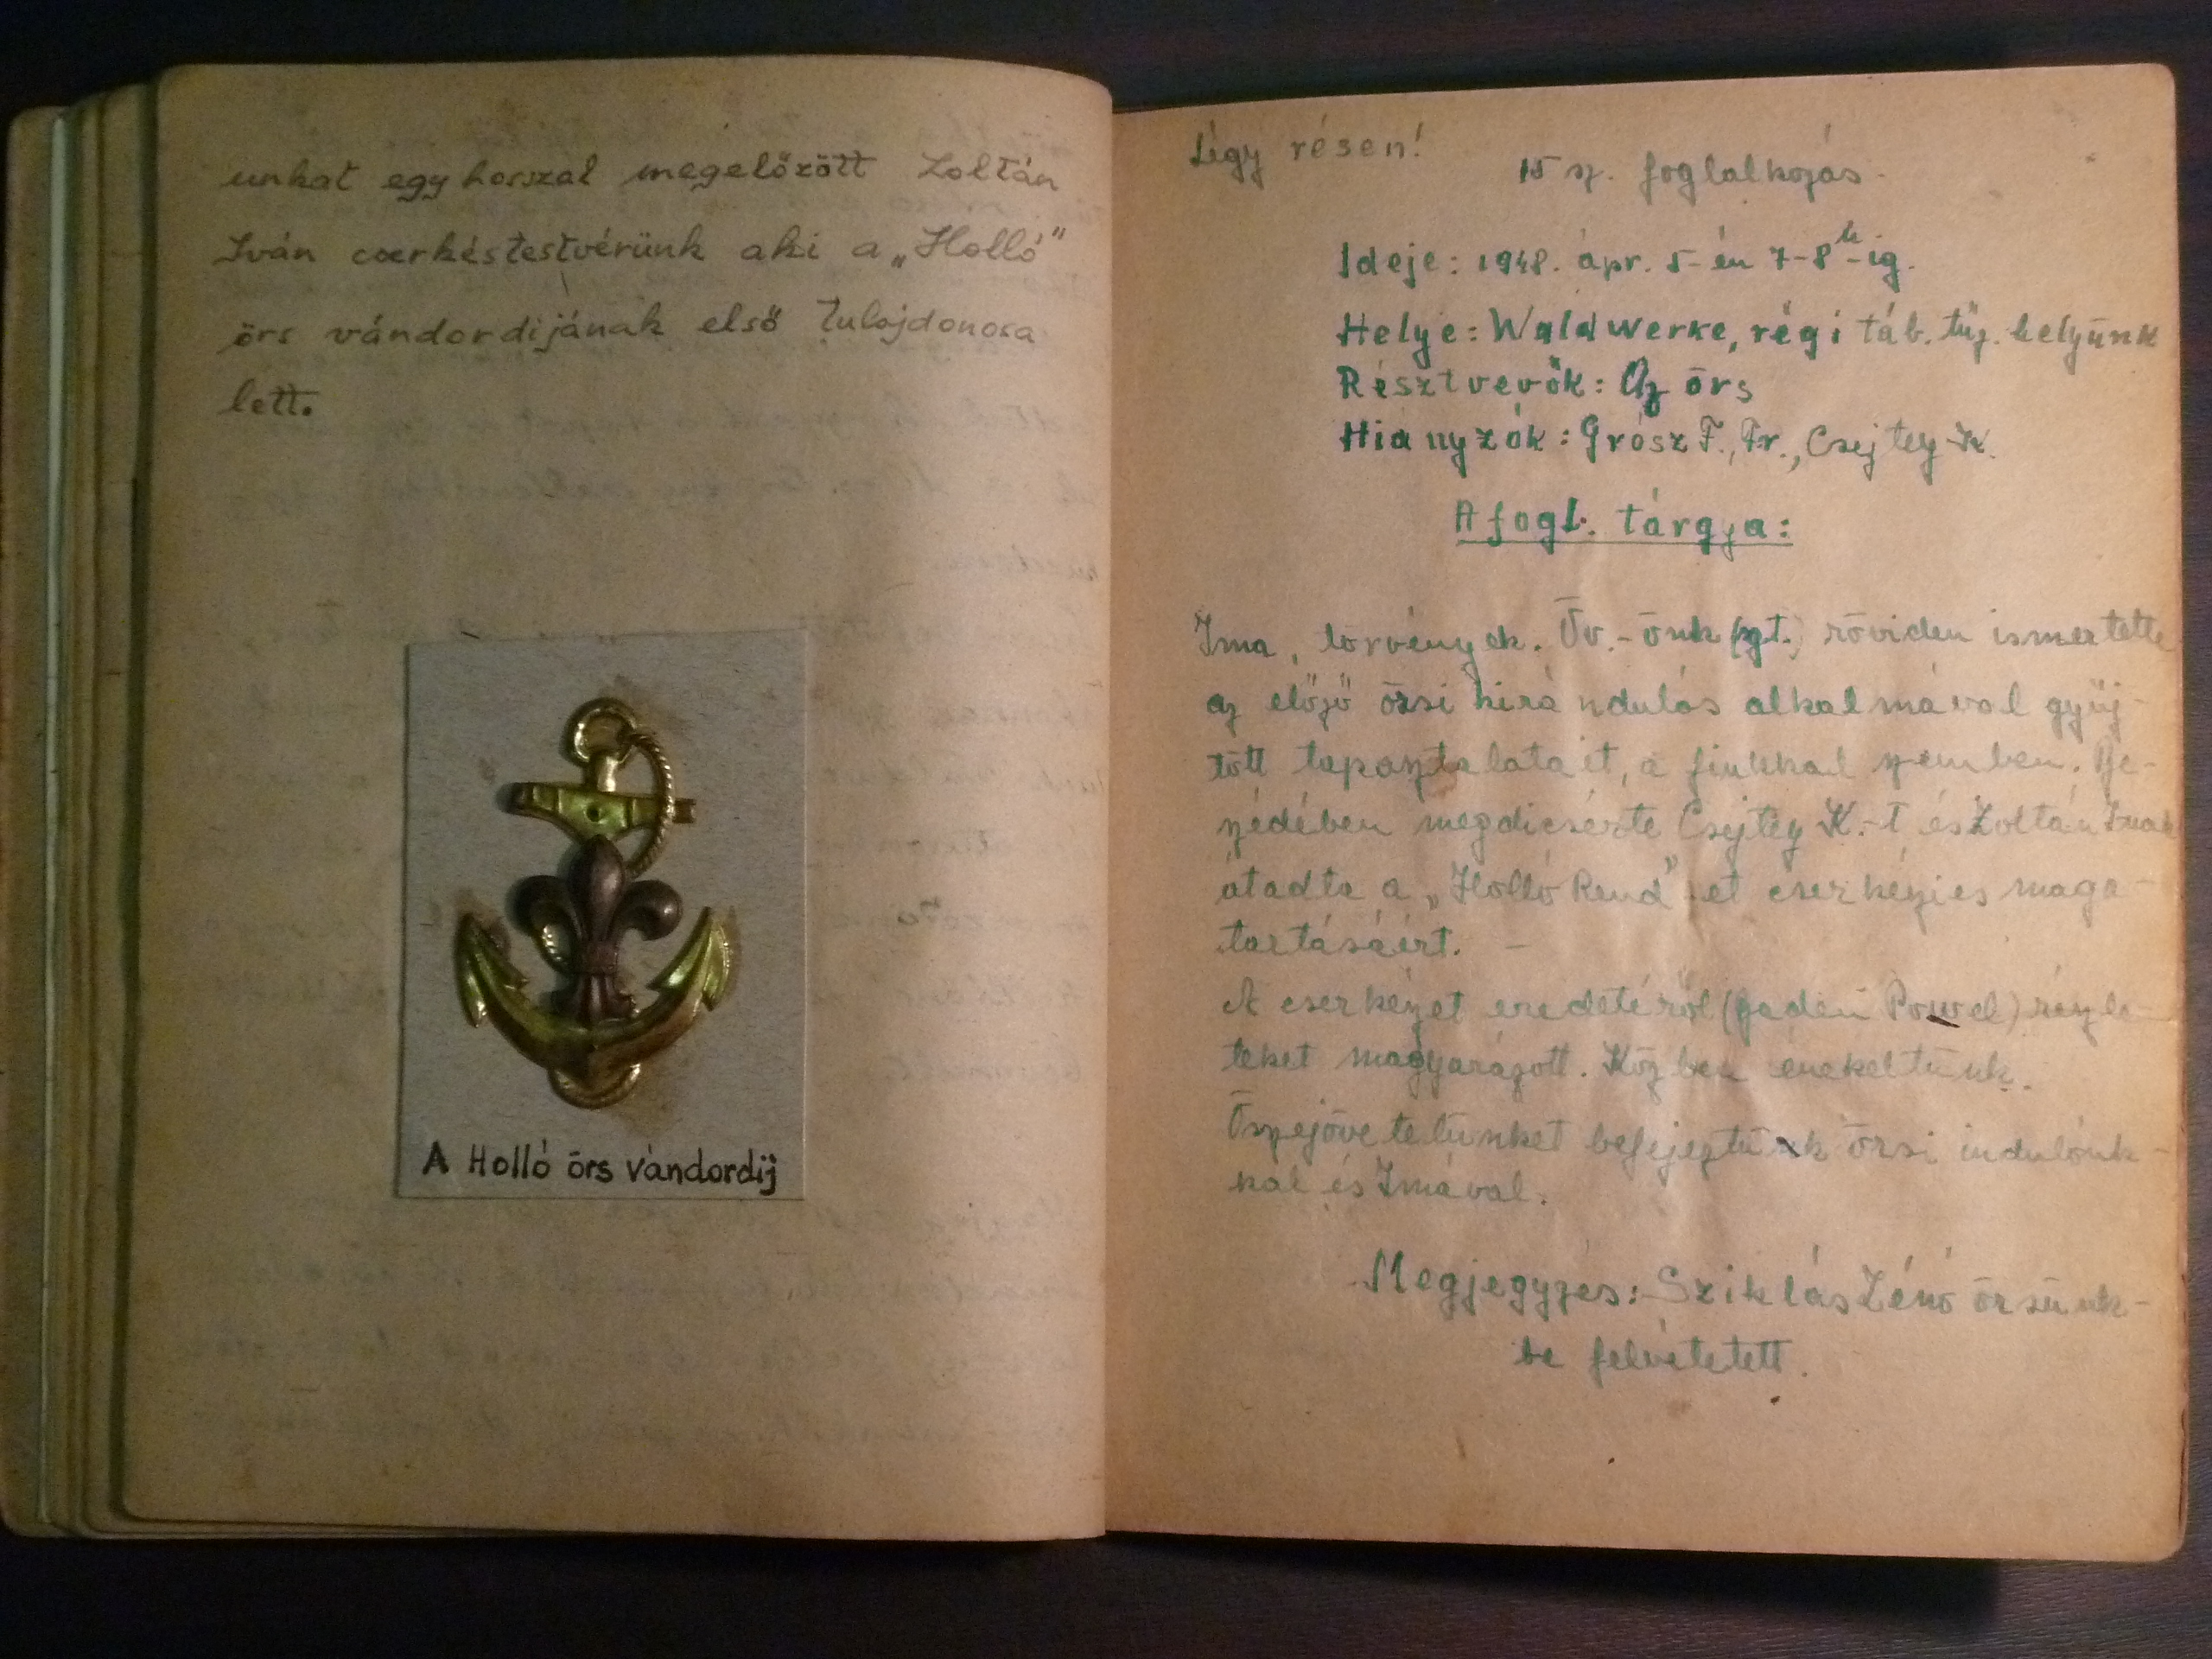 unkat egy hosszal megelőzött Zoltán
Iván cserkéstestvérünk aki a „Holló"
örs vándordijának első tulajdonosa
lett.
A Holló örs vándordij
Légy résen!
15 sz. foglalkozás.
Ideje: 1948. ápr. 5-én 7-8h-ig.
Helye: Waldwerke, régi táb. tűz. helyünk
Résztvevők: Az örs
Hiányzók: Grósz F., Fr., Csejtey K.
A fogl. tárgya:
Ima, törvények. Öv.-önk röviden ismertette
az előző örsi kirándulás alkalmával gyűj-
tött tapasztalatait, a fiukkal szemben. Be-
szédében megdicsérte Csejtey K.-t és Zoltán
átadta a „Holló Rend"-et cserkészies maga-
tartásáért. –
A cserkészet eredetéről (Baden Powel) részle-
teket magyarázott. Közben énekeltünk.
Öszejövetelünket befejeztük örsi indulónk-
kal és Imával.
Megjegyzés: Sziklás Zénó örsünk-
be felvétetett.